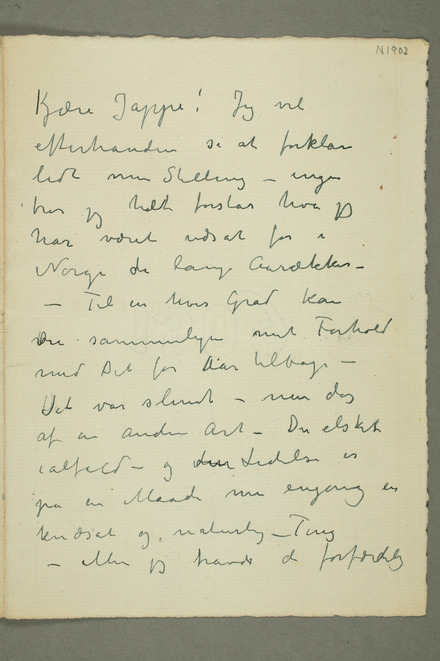 N 1902
Kjære Jappe! Jeg vil
efterhanden se at forklare
lidt min Stilling – ingen
tror jeg helt forstår hva jeg
har været udsat for i
Norge de lange Aarrækker –
– Til en hvis Grad kan
du sammenligne mit Forhold
med Dit for Aar tilbage –
Det var slemt – men dog
af en anden Art – Du elsket
ialfald – og den Lidelse er
på en Maade nu engang en
kendsat og naturlig – Ting
– Men jeg havde de forfærdelig